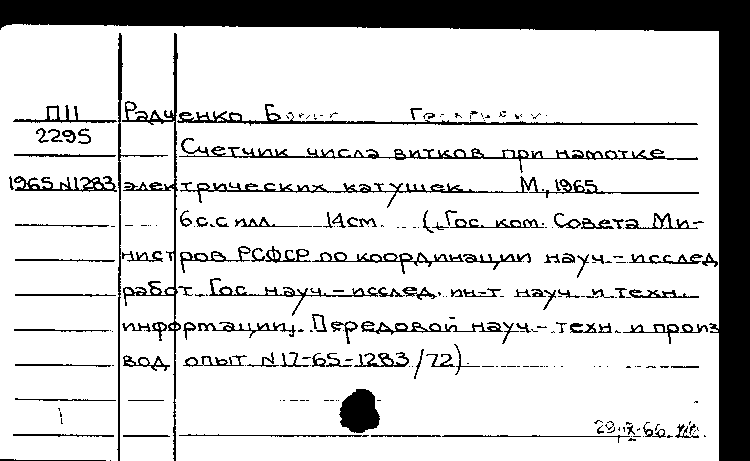 П11 Радченко, Борис Георгиевич
2295
Счетчик числа витков при намотке
1965 N1283 электрических катушек. М., 1965.
6 с. с илл. 14 cm. („Гос. ком. Совета Ми-
нистров РСФСР по координации науч.-исслед
работ. Гос. науч.-исслед. ин-т науч. и техн.
информации„. Передовой науч.-техн. и произ
вод. опыт. N17-65-1283/72).
29.IX.66.